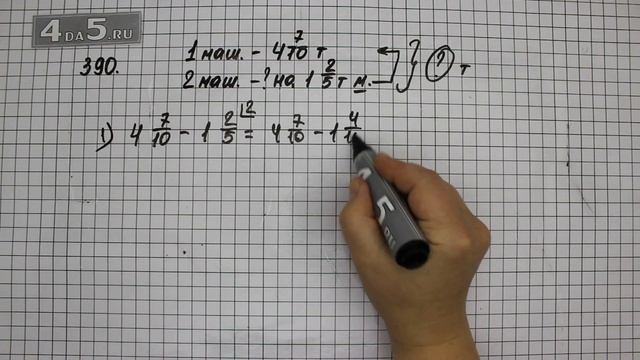 4DA5.RU
390.
1 маш. – 4 7/10 т
2 маш. – ? на 1 2/5 т м. } ? т
1) 4 7/10 – 1 2/5 ⌊2 = 4 7/10 – 1 4/1
5
.RU